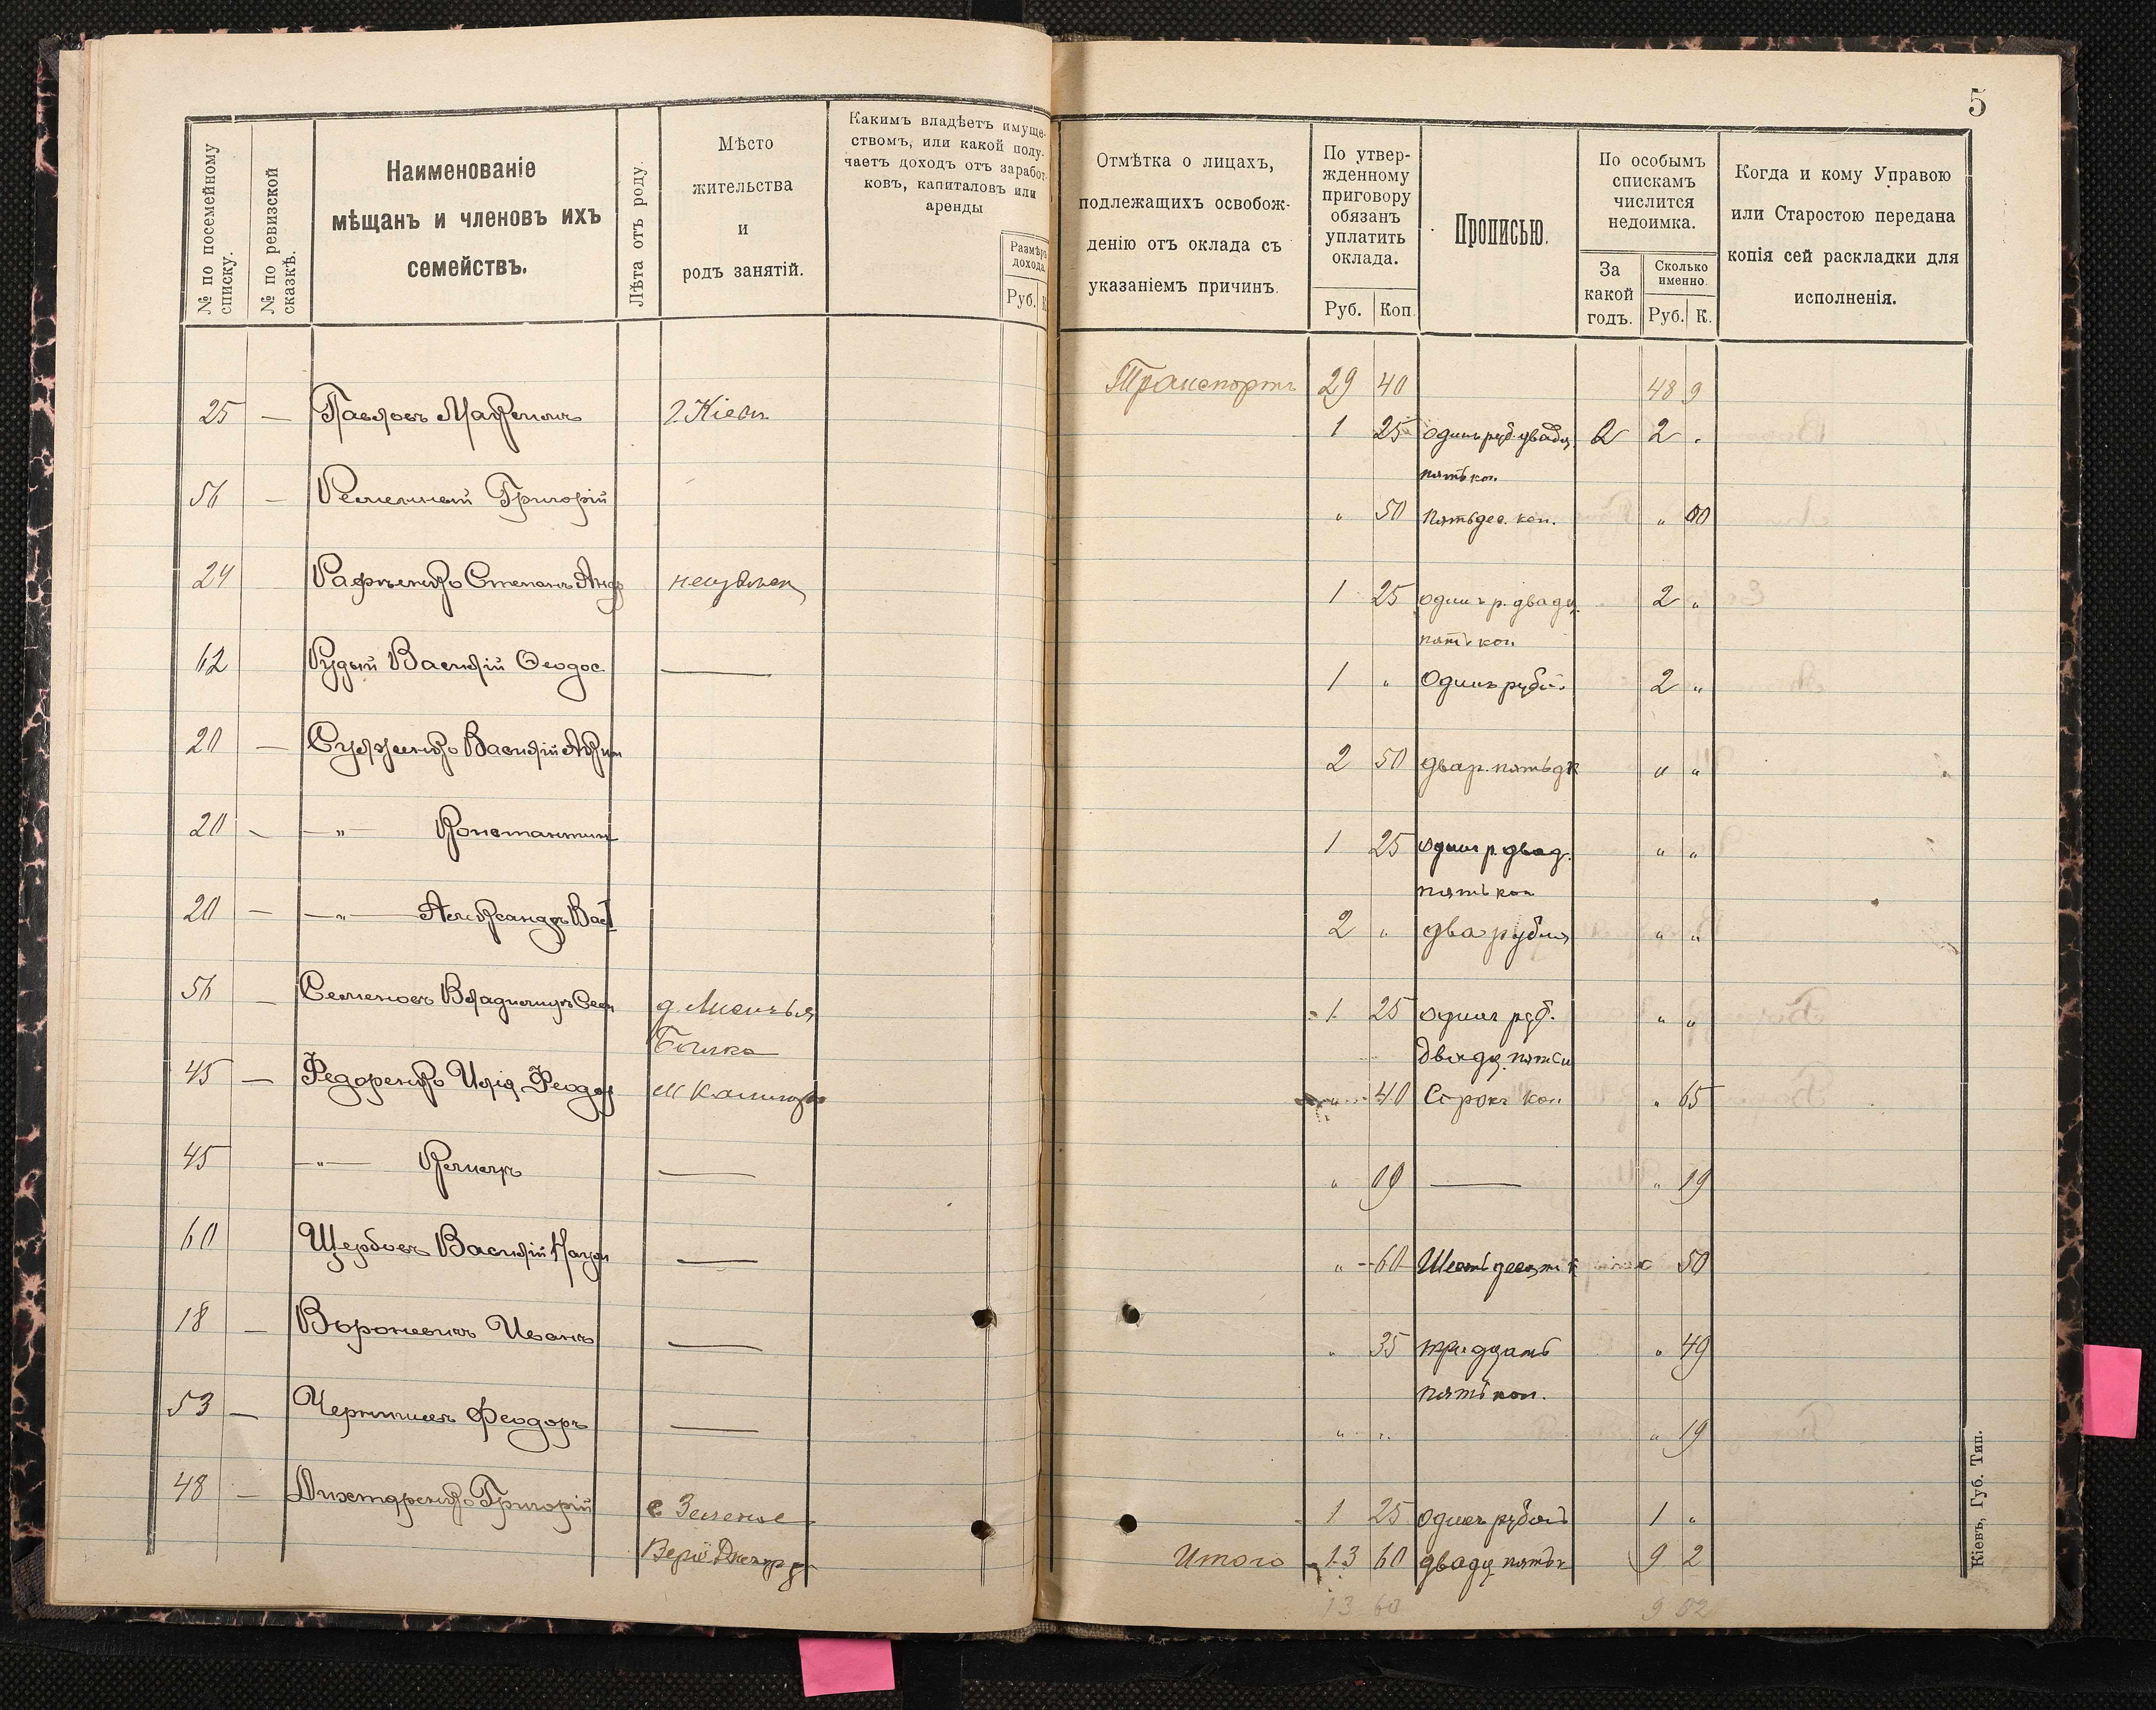 5
№ по посемейному списку.
№ по ревизской сказкѣ.
Наименованіе
мѣщанъ и членовъ ихъ
семействъ.
Лѣта отъ роду.
Мѣсто
жительства
и
родъ занятій.
Какимъ владѣетъ имуще-
ствомъ, или какой полу-
чаетъ доходъ отъ заработ-
ковъ, капиталовъ или
аренды
Размѣръ
дохода.
Руб. К.
Отмѣтка о лицахъ,
подлежащихъ освобож-
денію отъ оклада съ
указаніемъ причинъ.
По утвер-
жденному
приговору
обязанъ
уплатить
оклада.
Руб. Коп.
Прописью.
По особымъ
спискамъ
числится
недоимка.
За
какой
годъ.
Сколько
именно.
Руб. К.
Когда и кому Управою
или Старостою передана
копія сей раскладки для
исполненія.
Транспортъ 29 40 48 9
25 — Павловъ г. Кіевъ 1 25 одинъ руб. двадц. 2 .
пять коп.
56 — Григорій " 50 пятьдес. коп. "
24 — Степанъ Андр 1 25 одинъ р. двадц. 2 "
пять коп
62 Рудый Василій Ѳеодос. — 1 " Одинъ рубль 2 "
20 — Василій 2 50 два р. пятьд к " "
20 - — " — Константинъ 1 25 один р. двад. " "
пять коп
20 — — " — Александръ Вас 2 " два рубля " "
56 — Семеновъ Владимиръ Сем д. 1 25 один руб. " "
Балка двадц. пять к
45 — Федоренко Илія Феодор м " 40 Сорокъ коп " 65
45 — " — — " 09 — " 19
60 Щербовъ Василій — " 60 Шестьдесят к 50
18 — Иванъ — " 35 тридцать " 49
пять коп.
53 — Феодоръ — " " " 19
48 — Григорій с Зеленое 1 25 один рубль 1 "
Итого 13 60 двадц пять к 9 2
13 60 9 02
Кіевъ, Губ. Тип.